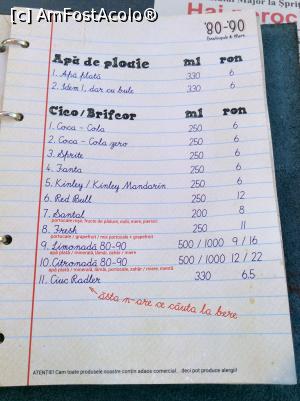 [c] AmFostAcolo®
Major la Șpriț
Hai
'80-90
Apă de ploaie ml ron
1. Apă plată 330 6
2. Idem 1, dar cu bule 330 6
Cico/Brifcor ml ron
1. Coca - Cola 250 6
2. Coca - Cola zero 250 6
3. Sprite 250 6
4. Fanta 250 6
5. Kinley / Kinley Mandarin 250 6
6. Red Bull 250 12
7. Santal 200 8
portocale roșii, fructe de pădure, nuci, mere, piersici
8. Fresh 250 11
portocale / grapefruit / mix portocale + grapefruit
9. Limonadă 80-90 500 / 1000 9 / 16
apă plată / minerală, lămâi, zahăr / miere, mentă
10. Citronadă 80-90 500 / 1000 12 / 22
apă plată / minerală, lămâi, portocale, zahăr / miere, mentă
11. Ciuc Radler 330 6.5
ăsta n-are ce căuta la bere
ATENȚIE! Cam toate produsele noastre conțin adaos comercial... deci pot produce alergii!